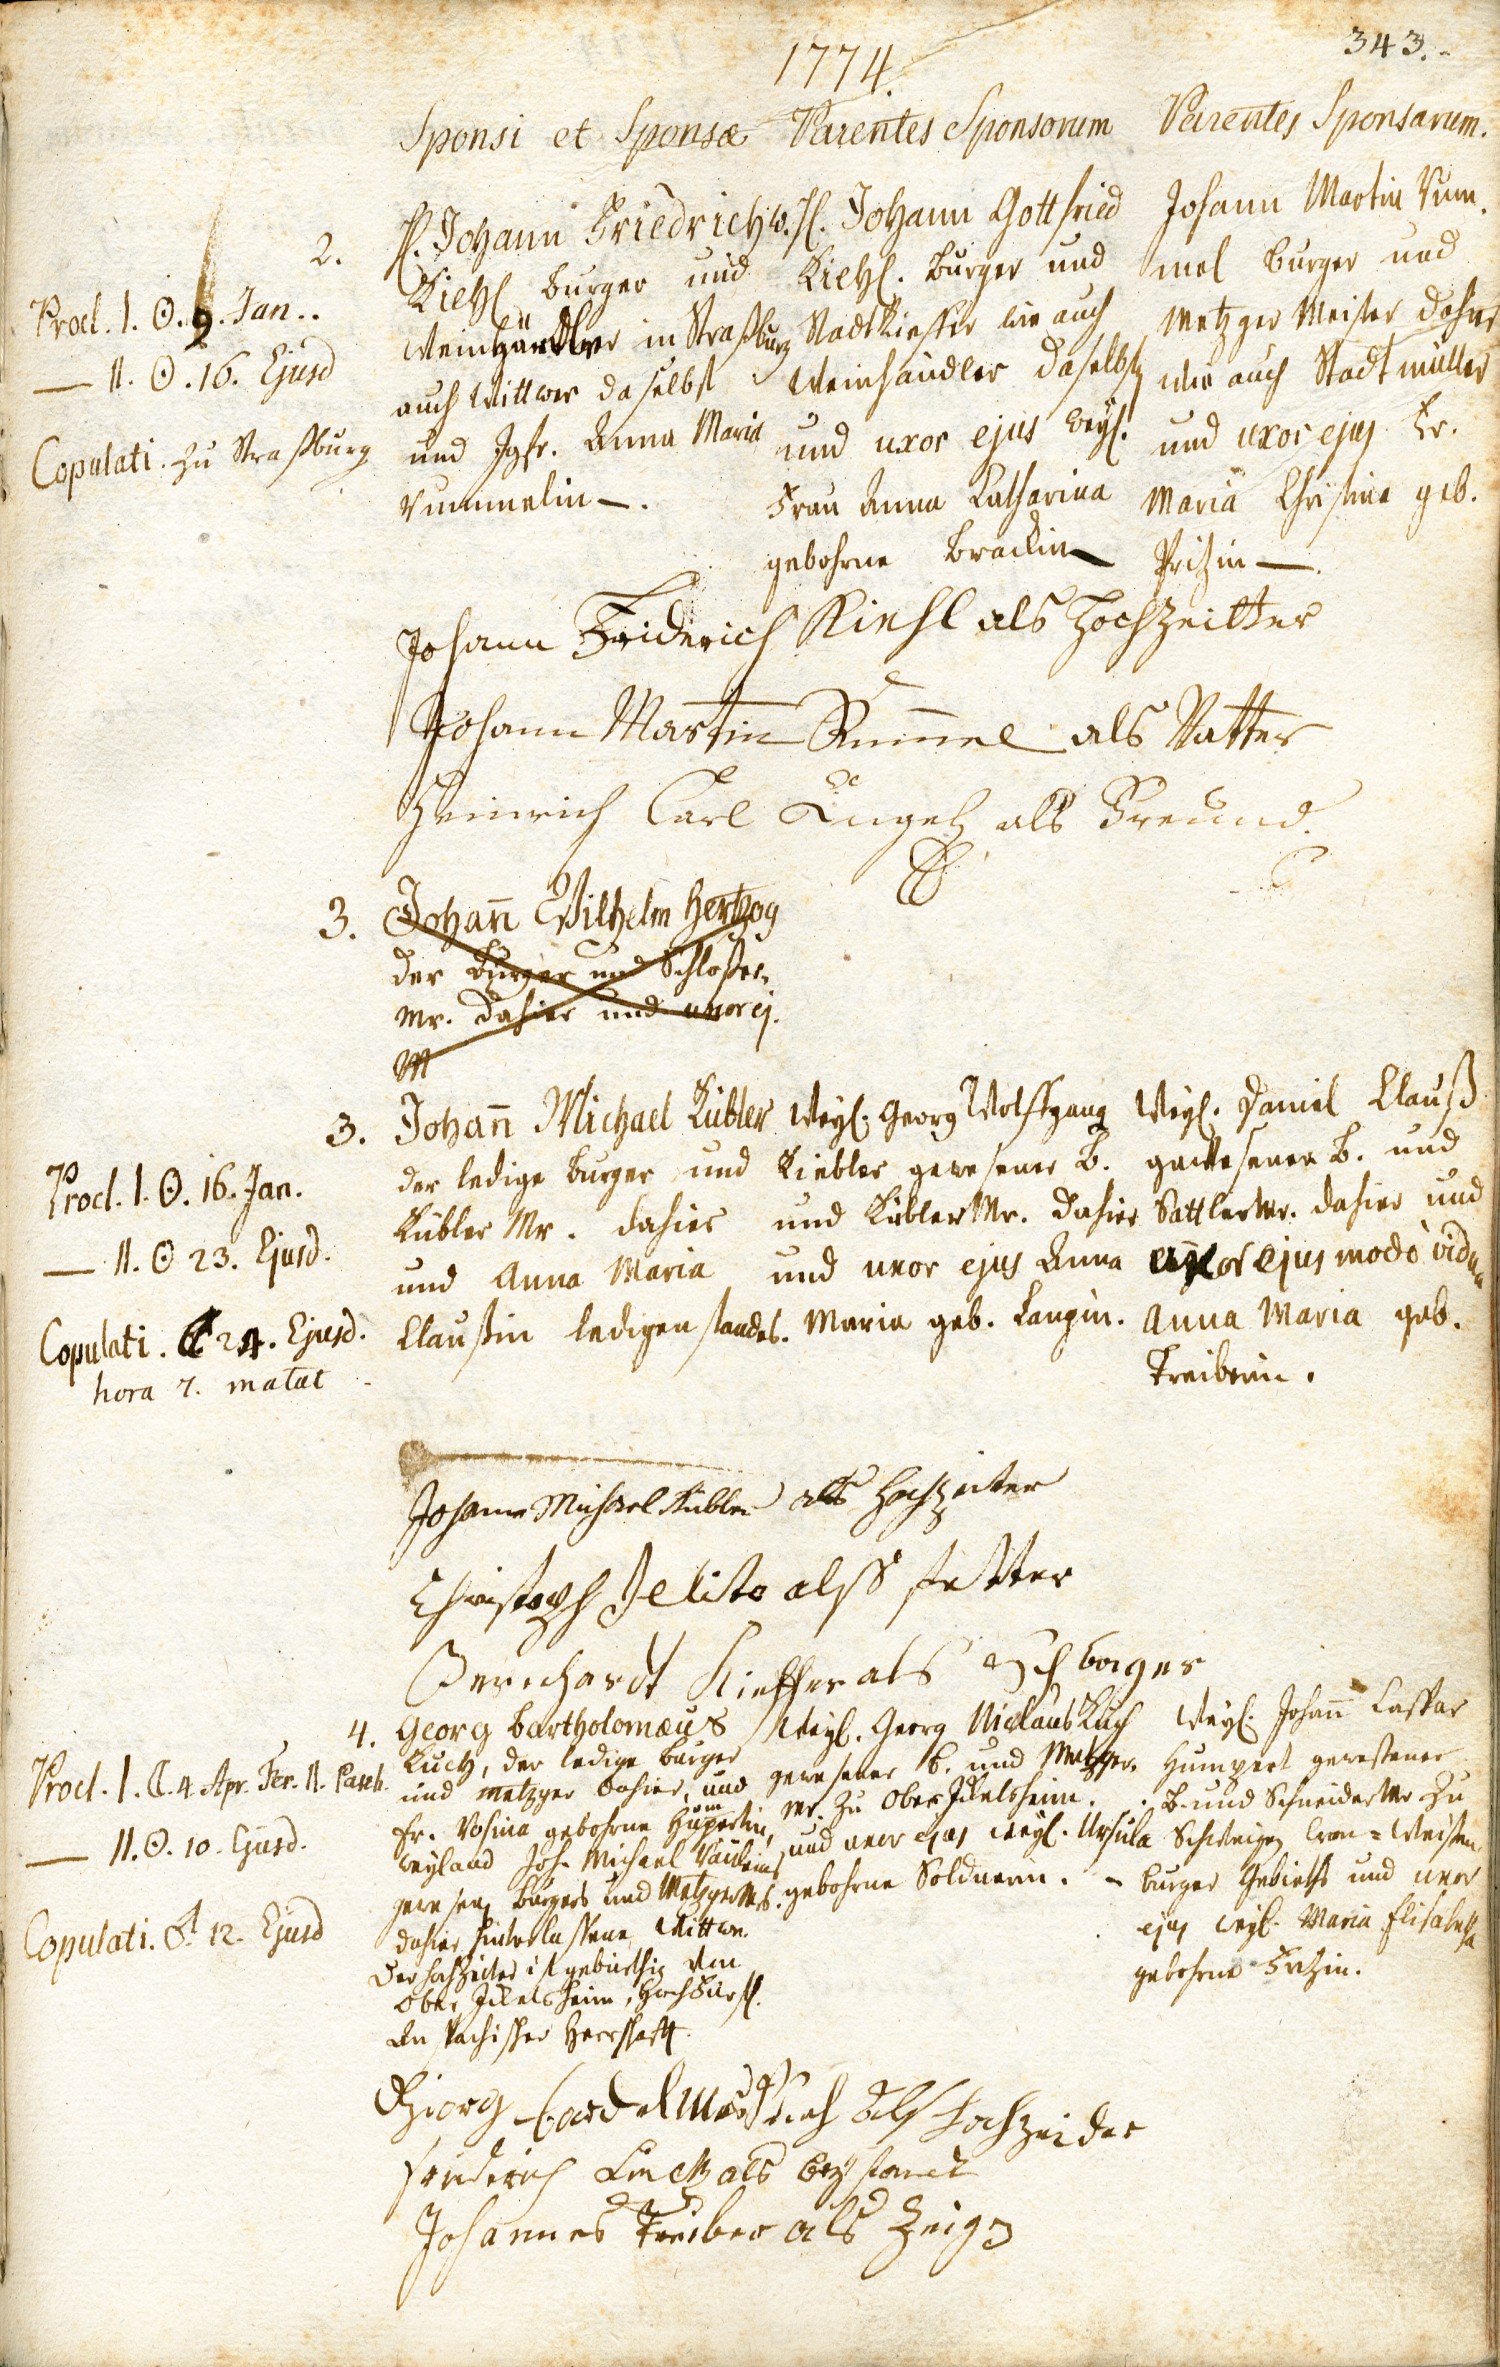 343.
1774.
Sponsi et Sponsæ
Parentes Sponsorum
Parentes Sponsarum.
2.
Procl. I. ☉. 9. Jan..
— II. ☉. 16. Ejusd
Copulati. zu Straßburg
H. Johann Friedrich
Kiehl burger und
Weinhändler in Straßburg
auch Wittwer daselbst
und Jgfr. Anna Maria
Rummelin —.
w. H. Johann Gottfried
Kiehl. burger und
Stadtkieffer wie auch
Weinhändler daselbst
und uxor ejus weyl.
Frau Anna Catharina
gebohrne Brackin —
Johann Martin Rum-
mel burger und
Metzger Meister dahier
wie auch Stadtmüller
und uxor ejus Fr.
Maria Christina geb.
Pritzin —.
Johann Friderich Kiehl als Hochzeitter
Johann Martin Rummel als Vatter
Heinrich Carl Engel als Freund.
3. Johann Wilhelm Hertzog
der Burger und Schloßer-
Mr. dahier und uxor ej.
M
3.
Procl. I. ☉. 16. Jan.
— II. ☉ 23. Ejusd.
Copulati. ☾ 24. Ejusd.
hora 7. matat
Johann Michael Kübler
der ledige burger und
Kübler Mr. dahier
und Anna Maria
Claußin ledigen standes.
Weyl. Georg Wolffgang
Kiebler gewesener B.
und Kübler Mr. dahier
und uxor ejus Anna
Maria geb. Langin.
Weyl. Daniel Clauß
gewesener B. und
Sattler Mr. dahier und
uxor ejus modo vidua
Anna Maria geb.
Treiberin.
Johann Michael Kübler als Hochzeiter
Christoph als Vetter
Bernhardt Kieffer als Schwager
4.
Procl. I. ☾. 4 Apr. Fer. II. Pasch.
— II. ☉. 10. Ejusd.
Copulati. ♂. 12. Ejusd
Georg Bartholomæus
Kuch, der ledige burger
und Metzger dahier, und
Fr. Rosina gebohrne Humpertin,
weyland Joh. Michael
gewesenen burgers und Metzger Mrs.
dahier hinterlassene Wittwe.
Der Hochzeiter ist gebürthig von
Ober Ickelsheim, Hochfürstl.
Anspachischer Herrschafft.
Weyl. Georg Niclaus Kuch
gewesener B. und Metzger-
Mr. zu Ober Ickelsheim.
und uxor ejus weyl. Ursula
gebohrne Soldnerin.
Weyl. Johann Caspar
Humpert gewesener
B. und Schneider Mr zu
Schweigen Cron-Weissen-
burger Gebieths und uxor
ejus weyl. Maria Elisabetha
gebohrne
als Hochzeider
als beystand
Johannes Treiber als Zeig